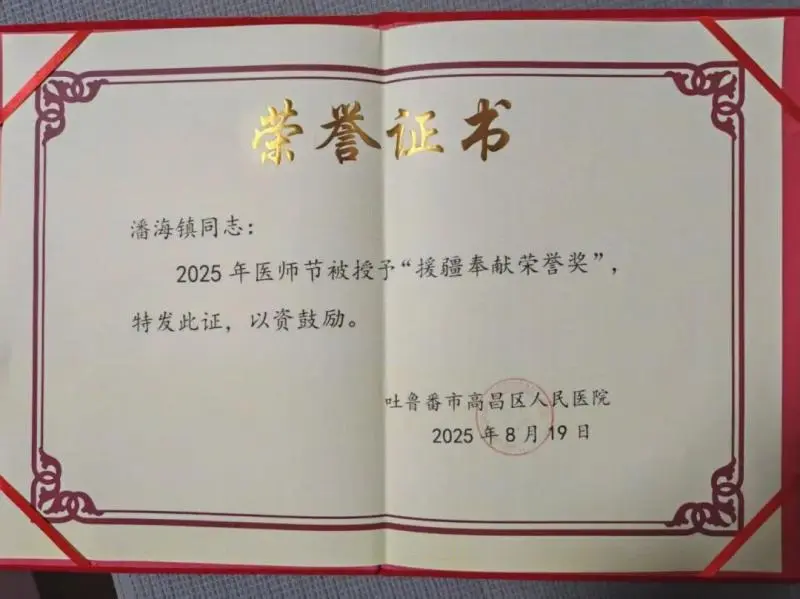 荣誉证书
潘海镇同志：
2025年医师节被授予“援疆奉献荣誉奖”，
特发此证，以资鼓励。
吐鲁番市高昌区人民医院
2025年8月19日